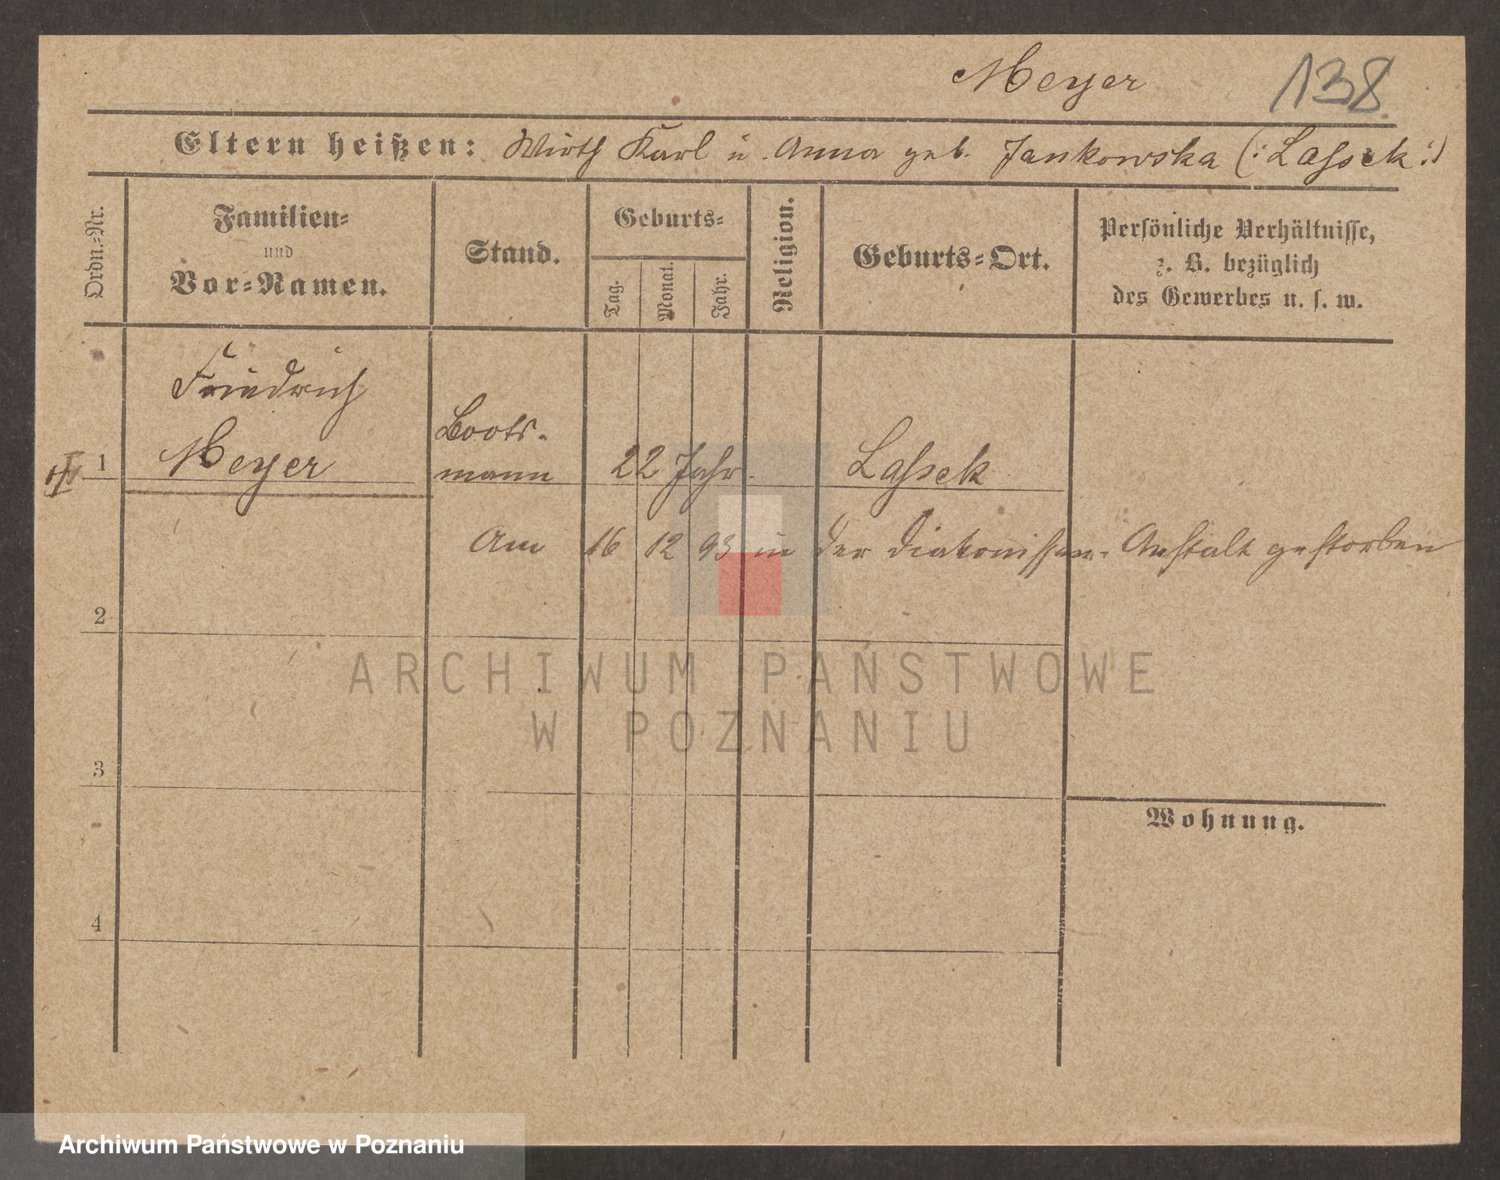 Meyer 138
Eltern heißen: Wirth Karl u. Anna geb. Jankowska (: Lassek :)
Ordn.-Nr.
Familien-
und
Vor-Namen.
Stand.
Geburts-
Tag.
Monat.
Jahr.
Religion.
Geburts-Ort.
Persönliche Verhältnisse,
z. B. bezüglich
des Gewerbes u. s. w.
Friedrich
1 Meyer
Boots-
mann
22 Jahr.
Lassek
Am 16 12 93 in der Diakonissen-Anstalt gestorben
2
3
Wohnung.
4
ARCHIWUM PAŃSTWOWE
W POZNANIU
Archiwum Państwowe w Poznaniu